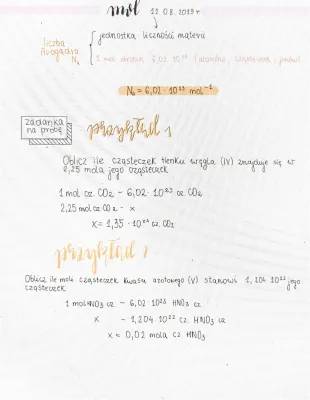 mol 12.08.2019 r
liczba Avogadra Nₐ
jednostka liczności materii
1 mol drobin 6,02 · 10²³ (atomów, cząsteczek, jonów)
Nₐ = 6,02 · 10²³ mol⁻¹
zadanka na próbę
przykład 1
Oblicz ile cząsteczek tlenku węgla (IV) znajduje się w
2,25 mola jego cząsteczek
1 mol cz. CO₂ – 6,02 · 10²³ cz. CO₂
2,25 mol cz. CO₂ – x
x = 1,35 · 10²⁴ cz. CO₂
przykład 2
Oblicz ile moli cząsteczek kwasu azotowego (V) stanowi 1,204 10²² jego
cząsteczek
1 mol HNO₃ cz. – 6,02 10²³ HNO₃ cz
x – 1,204 · 10²² cz. HNO₃ cz
x = 0,02 mola cz HNO₃